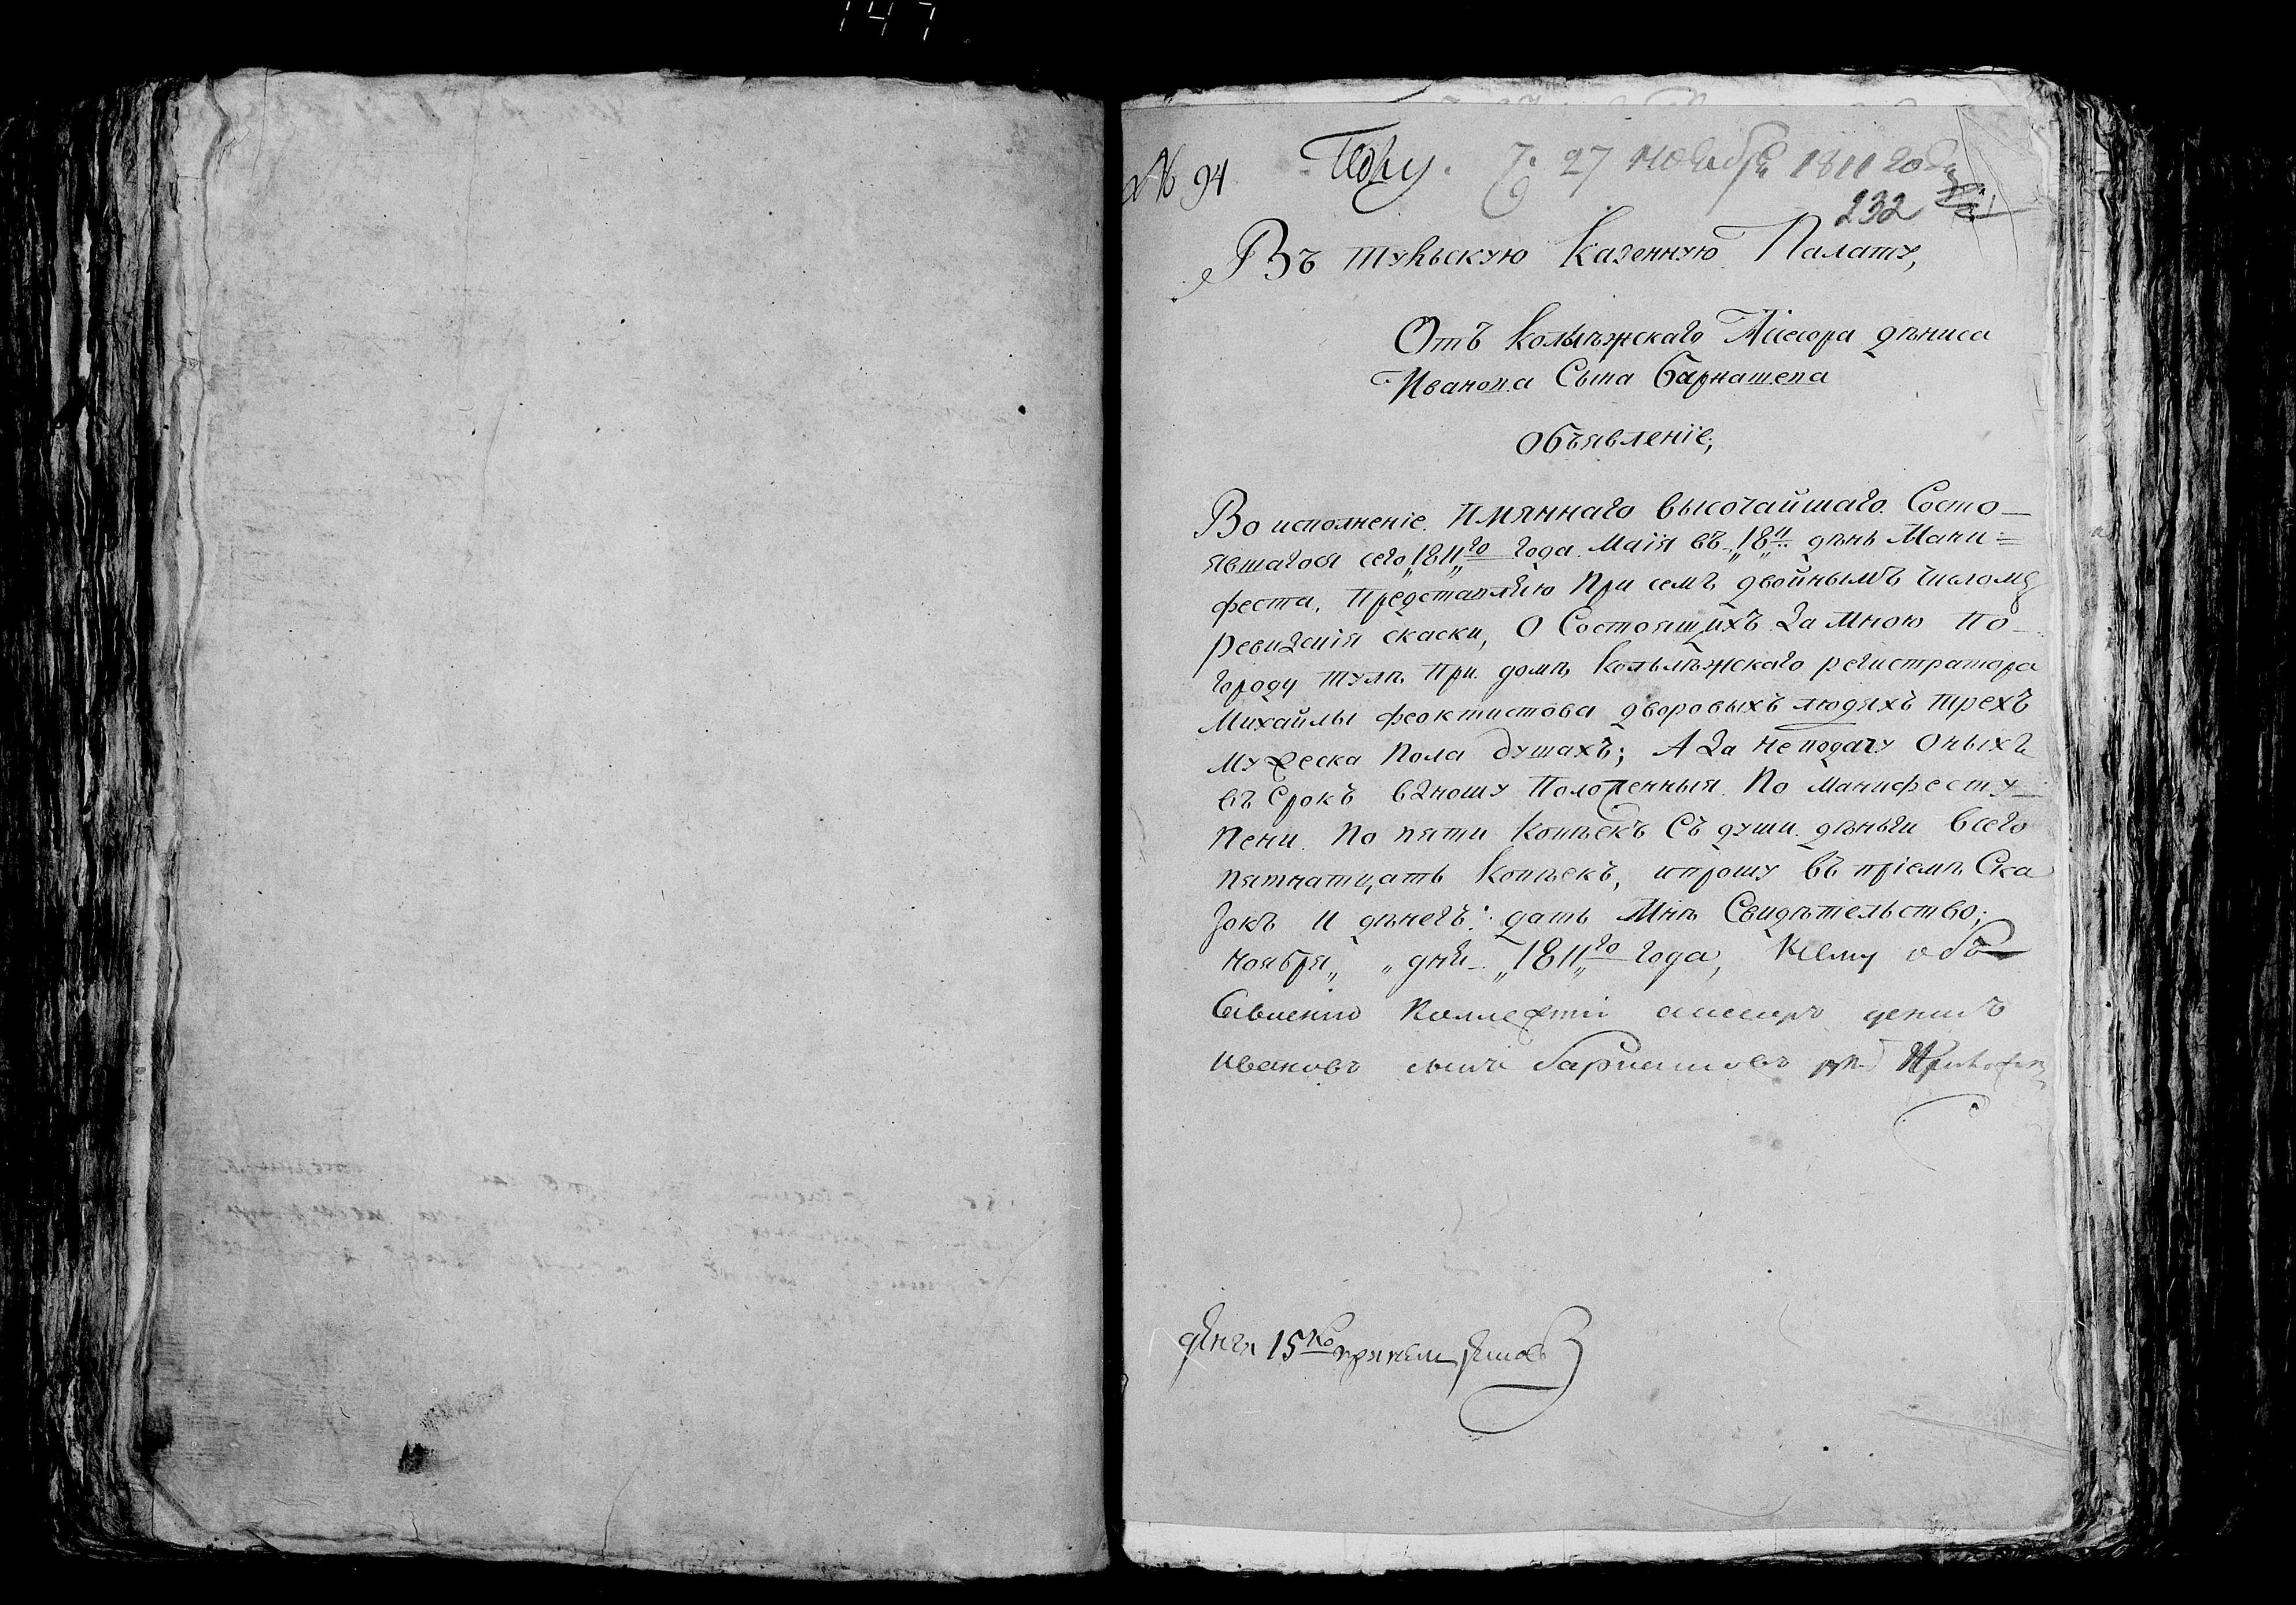 147
№ 94 Тобру. 27 ноября 1811 года
232
Въ тульскую Казенную Палату,
Отъ колълѣжскаго Ассесора дѣниса
Иванова Сына барнашева
Объявленіе,
Во исполненіе Имяннаго высочайшаго Состо-
явшагося сего „1811„го года Маія въ „18й„ дѣнь Мани=
феста, Представляю При семъ двойнымъ числомъ
ревизскія скаски, О Состоящихъ За Мною По-
городу Тулѣ При домѣ колълѣжскаго регистратора
Михайлы феоктистова дворовыхъ людяхъ трехъ
мужеска Пола душахъ; А За неподачу Оныхъ
въ Срокъ взношу Положенныя По Манифесту-
Пени По пяти копѣекъ Съ души дѣньги всего
пятнатцать Копѣекъ, ипрошу въ пріемѣ Ска
зокъ И дѣнегъ: дать Мнѣ Свидѣтельство;
Ноября„ „дня „1811„го года, Ксему объ
Ивановъ сынъ барнашовъ руку Приложил
15 ко принел